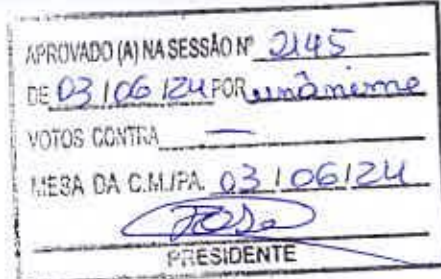 APROVADO (A) NA SESSÃO Nº 2145
DE 03/06/24 POR unânime
VOTOS CONTRA —
MESA DA C.M./PA. 03/06/24
PRESIDENTE